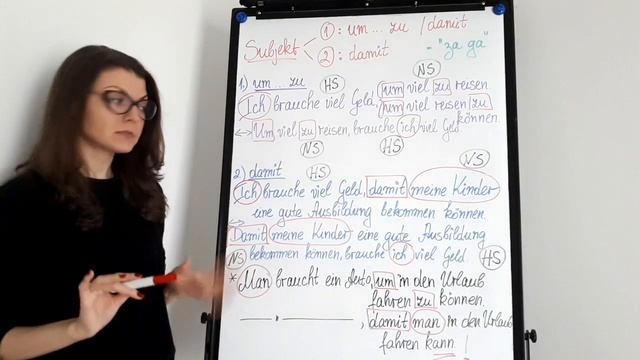 Subjekt
① : um ... zu / damit
② : damit
- "za ga"
1) um ... zu HS NS
Ich brauche viel Geld, um viel zu reisen
um viel reisen zu können.
↔ Um viel zu reisen, brauche ich viel Geld
NS HS
2) damit HS NS
Ich brauche viel Geld, damit meine Kinder
eine gute Ausbildung bekommen können.
↔ Damit meine Kinder eine gute Ausbildung
NS bekommen können, brauche ich viel Geld. HS
* Man braucht ein Auto, um in den Urlaub
fahren zu können.
——— " ———, damit man in den Urlaub
fahren kann !